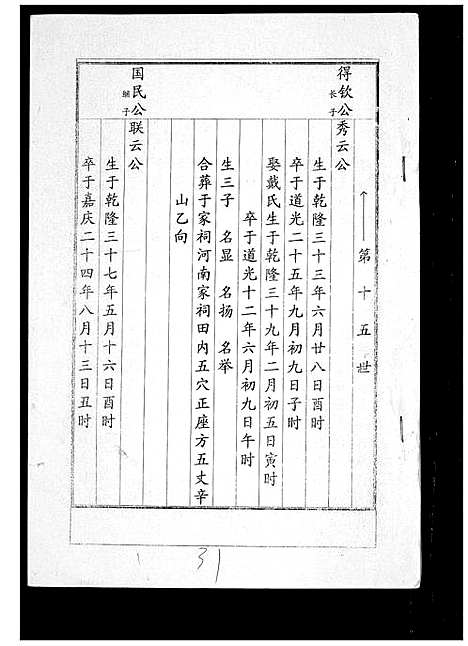 ←——第十五世
得钦公长子秀云公
生于乾隆三十三年六月廿八日酉时
卒于道光二十五年九月初九日子时
娶戴氏生于乾隆三十九年二月初五日寅时
卒于道光十二年六月初九日午时
生三子 名显 名扬 名举
合葬于家祠河南家祠田内五穴正座方五丈辛
山乙向
国民公继子联云公
生于乾隆三十七年五月十六日酉时
卒于嘉庆二十四年八月十三日丑时
31